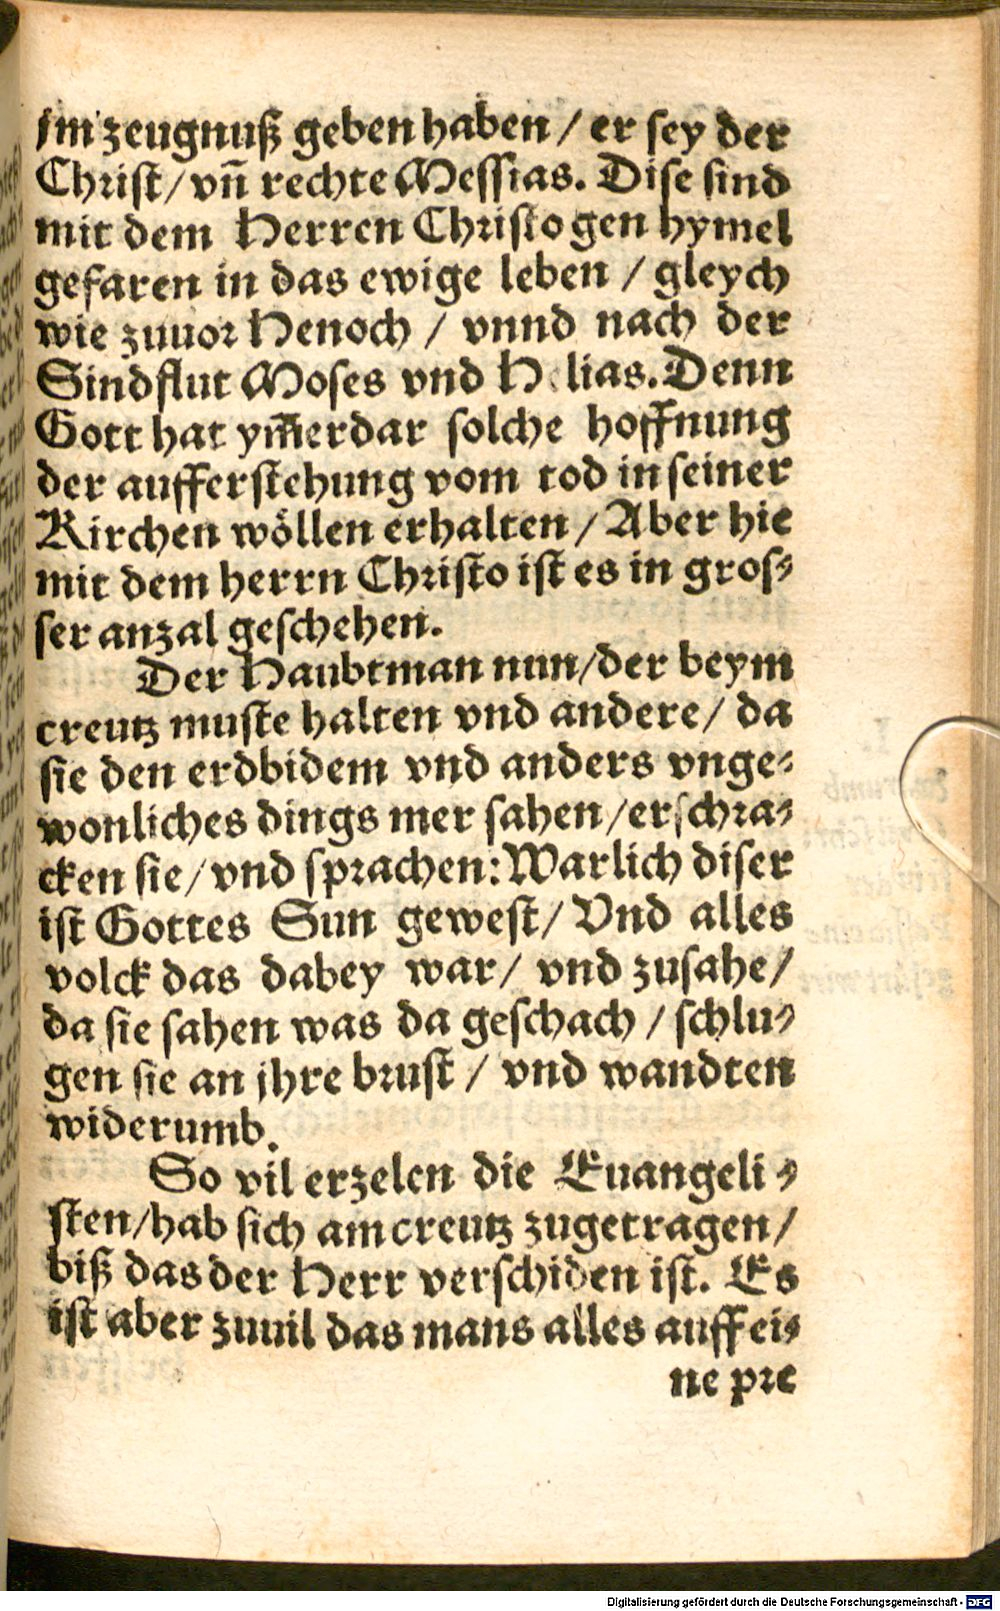 jm zeugnuß geben haben / er sey der
Christ / vñ rechte Messias. Dise sind
mit dem Herren Christo gen hymel
gefaren in das ewige leben / gleych
wie zuuor Henoch / vnnd nach der
Sindflut Moses vnd Helias. Denn
Gott hat ym̃erdar solche hoffnung
der aufferstehung vom tod in seiner
Kirchen wöllen erhalten / Aber hie
mit dem herrn Christo ist es in gros⸗
ser anzal geschehen.
Der Haubtman nun / der beym
creutz muste halten vnd andere / da
sie den erdbidem vnd anders vnge⸗
wonliches dings mer sahen / erschra⸗
cken sie / vnd sprachen: Warlich diser
ist Gottes Sun gewest / Vnd alles
volck das dabey war / vnd zusahe /
da sie sahen was da geschach / schlu⸗
gen sie an jhre brust / vnd wandten
widerumb.
So vil erzelen die Euangeli⸗
sten / hab sich am creutz zugetragen /
biß das der Herr verschiden ist. Es
ist aber zuuil das mans alles auff ei⸗
ne pre
Digitalisierung gefördert durch die Deutsche Forschungsgemeinschaft - DFG